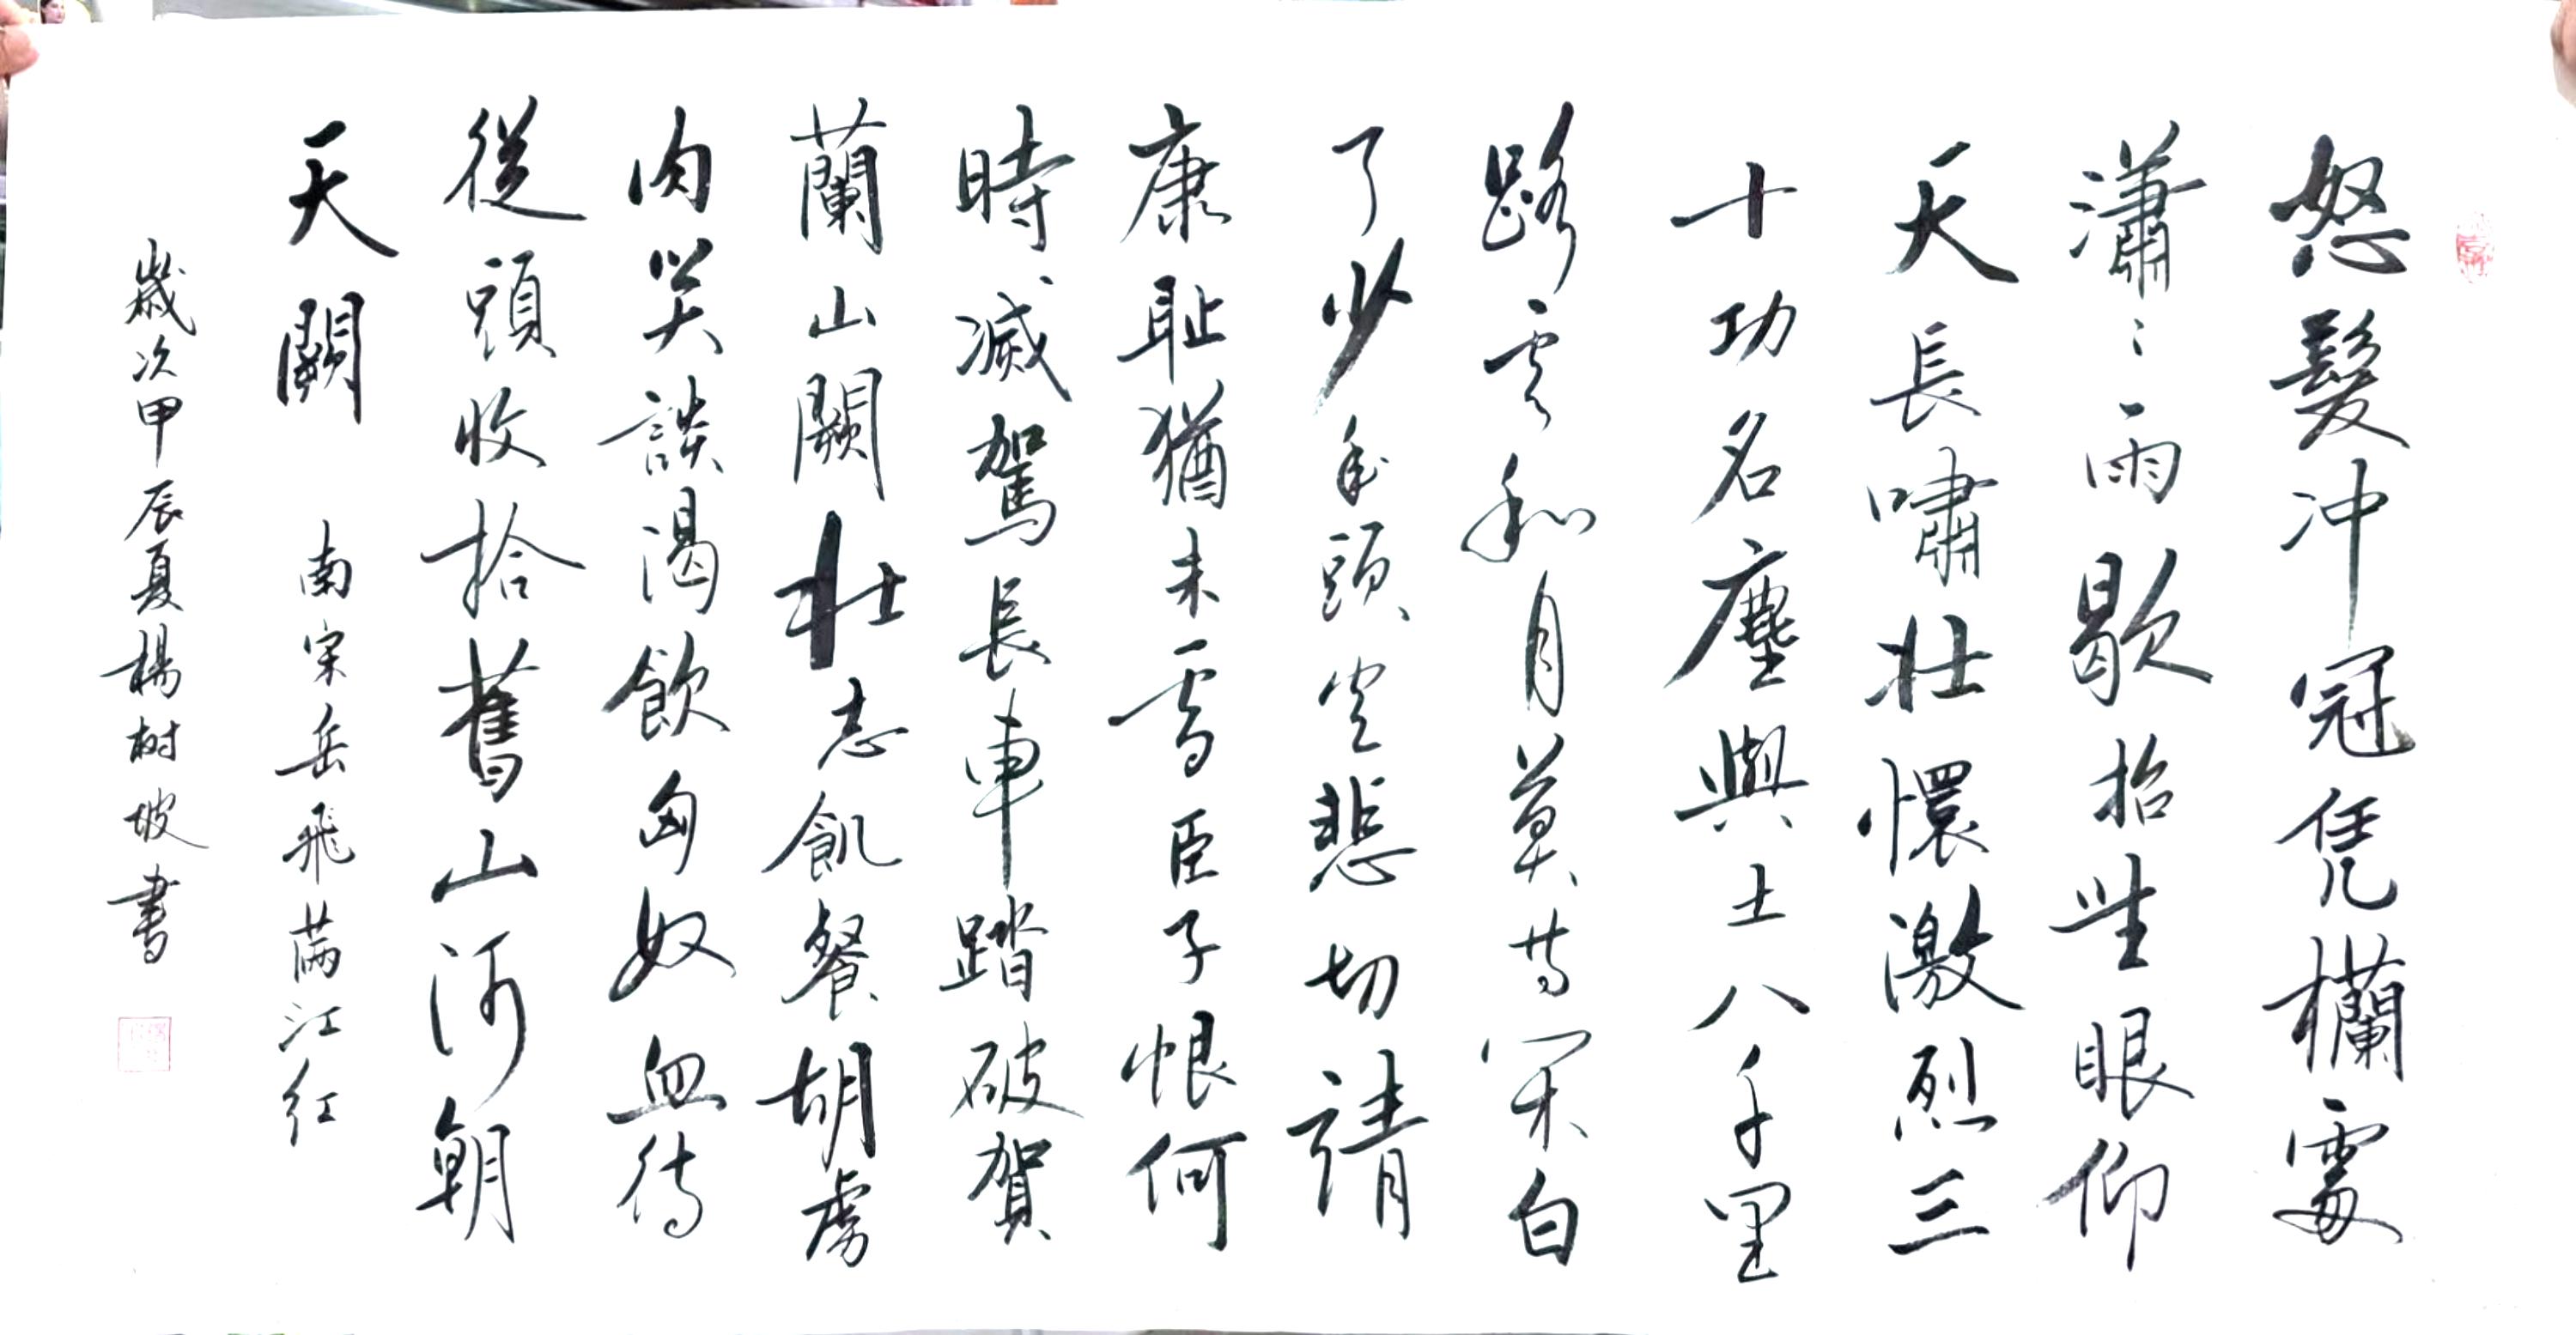 怒髮冲冠凭欄處
瀟々雨歇抬望眼仰
天長嘯壯懷激烈三
十功名塵與土八千里
路雲和月莫等閑白
了少年頭空悲切靖
康耻猶未雪臣子恨何
時滅駕長車踏破賀
蘭山闕壯志飢餐胡虜
肉笑談渴飲匈奴血待
從頭收拾舊山河朝
天闕 南宋岳飛滿江红
歲次甲辰夏楊树坡書